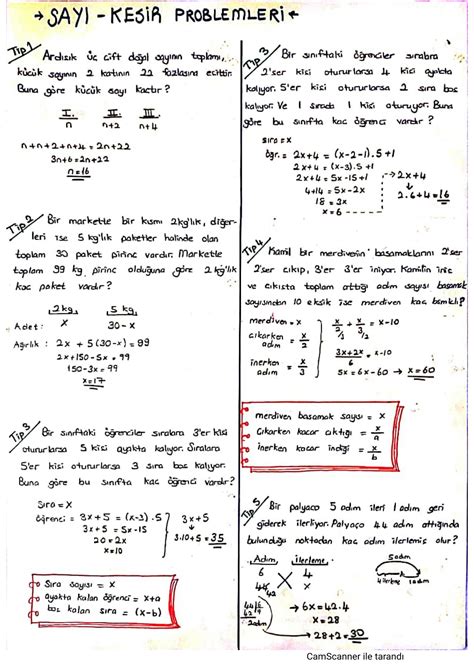 →SAYI - KESİR PROBLEMLERİ←
Tip 1
Ardışık üç çift doğal sayının toplamı,
küçük sayının 2 katının 22 fazlasına eşittir.
Buna göre küçük sayı kaçtır?
I. II. III.
n n+2 n+4
n+n+2+n+4 = 2n+22
3n+6=2n+22
n=16
Tip 2
Bir markette bir kısmı 2kg'lık, diğer-
leri ise 5 kg'lık paketler halinde olan
toplam 30 paket pirinç vardır. Markette
toplam 99 kg pirinç olduğuna göre 2 kg'lık
kaç paket vardır?
2kg, 5 kg,
Adet: x 30-x
Ağırlık: 2x + 5(30-x) = 99
2x+150-5x = 99
150-3x = 99
x=17
Tip 3
Bir sınıftaki öğrenciler sıralara 3'er kişi
otururlarsa 5 kişi ayakta kalıyor. Sıralara
5'er kişi otururlarsa 3 sıra boş kalıyor.
Buna göre bu sınıfta kaç öğrenci vardır?
Sıra = x
Öğrenci = 3x+5 = (x-3).5
3x+5 = 5x-15
20=2x
x=10
3x+5
3.10+5=35
Sıra sayısı = x
ayakta kalan öğrenci = x+a
boş kalan sıra = (x-b)
Tip 3
Bir sınıftaki öğrenciler sıralara
2'şer kişi otururlarsa 4 kişi ayakta
kalıyor. 5'er kişi otururlarsa 2 sıra boş
kalıyor. Ve 1 sırada 1 kişi oturuyor. Buna
göre bu sınıfta kaç öğrenci vardır?
sıra = x
öğr. = 2x+4 = (x-2-1).5+1
2x+4 = (x-3).5+1
2x+4 = 5x-15+1
4+14 = 5x-2x
18 = 3x
x=6
→2x+4
2.6+4=16
Tip 4
Kamil bir merdivenin basamaklarını 2'şer
2'şer çıkıp, 3'er 3'er iniyor. Kamilin iniş
ve çıkışta toplam attığı adım sayısı basamak
sayısından 10 eksik ise merdiven kaç bsmklı?
merdiven = x
çıkarken adım = x/2
inerken adım = x/3
x/2 + x/3 = x-10
3x+2x/6 = x-10
5x = 6x-60 → x=60
merdiven basamak sayısı = x
çıkarken kaçar çıktığı = x/a
inerken kaçar indiği = x/b
Tip 5
Bir palyaço 5 adım ileri 1 adım geri
giderek ilerliyor. Palyaço 44 adım attığında
bulunduğu noktadan kaç adım ilerlemiş olur?
Adım, İlerleme,
6 4
42
→ 6x = 42.4
x = 28
→ 28+2 = 30
5adım
4ilerleme 1adım
CamScanner ile tarandı